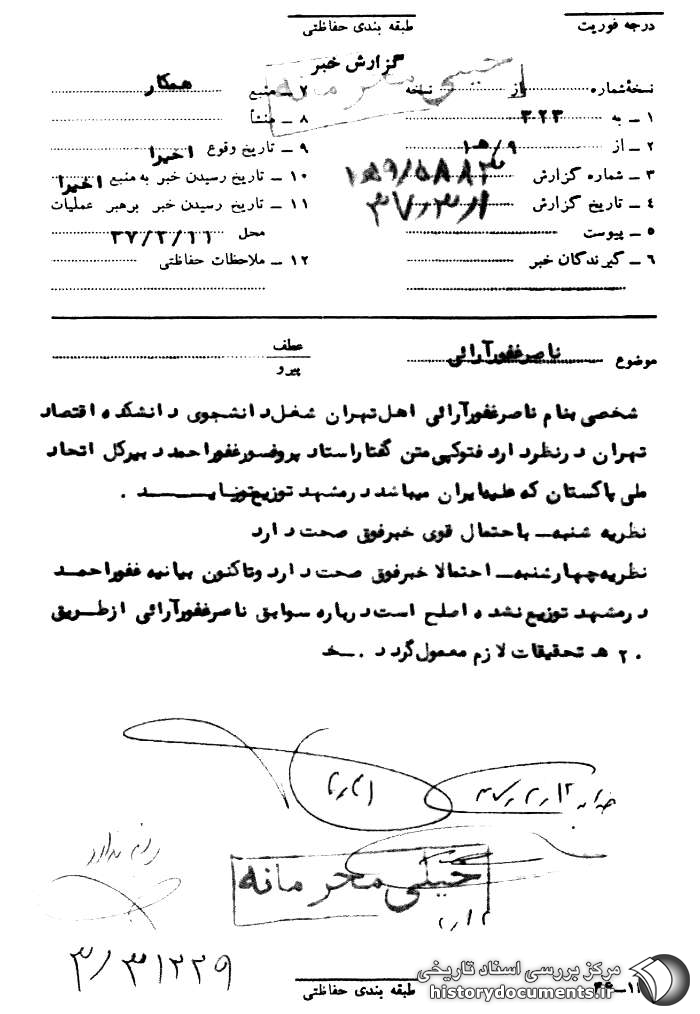 درجه فوریت
طبقه بندی حفاظتی
گزارش خبر
خیلی محرمانه
نسخهٔ شماره از نسخه
۱ ــ به ۳۲۳
۲ ــ از ۹/ﻫ۱
۳ ــ شماره گزارش
۴ ــ تاریخ گزارش
۵ ــ پیوست
۶ ــ گیرندگان خبر
۷ ــ منبع همکار
۸ ــ منشأ
۹ ــ تاریخ وقوع اخیرا
۱۰ ــ تاریخ رسیدن خبر به منبع اخیرا
۱۱ ــ تاریخ رسیدن خبر برهبر عملیات
محل ۳۷/۳/۱۱
۱۲ ــ ملاحظات حفاظتی
موضوع ناصر غفورآرائی
عطف
پیرو
شخصی بنام ناصرغفورآرائی اهل تهران شغل دانشجوی دانشکده اقتصاد
تهران درنظر دارد فتوکپی متن گفتار استاد پروفسورغفوراحمد دبیرکل اتحاد
ملی پاکستان که علیه ایران میباشد درمشهد توزیع نماید .
نظریه شنبه ــ باحتمال قوی خبرفوق صحت دارد
نظریه چهارشنبه ــ احتمالا خبرفوق صحت دارد وتاکنون بیانیه غفوراحمد
درمشهد توزیع نشده اصلح است درباره سوابق ناصرغفورآرائی ازطریق
۲۰ ﻫ تحقیقات لازم معمول گردد . ــ خ
خیلی محرمانه
۳/۳۱۲۲۹
طبقه بندی حفاظتی
مرکز بررسی اسناد تاریخی
historydocuments.ir